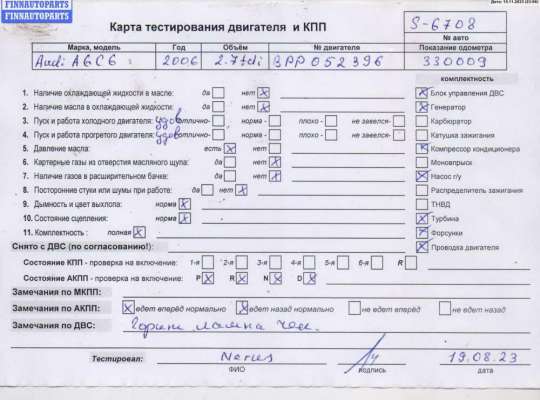 Дата: 15.11.2023 (23:58)
FINNAUTOPARTS
FINNAUTOPARTS
Карта тестирования двигателя и КПП
S-6708
№ авто
Марка, модель Год Объём № двигателя Показание одометра
Audi A6C6 2006 2.7tdi BPP052396 330009
комплектность
1. Наличие охлаждающей жидкости в масле: да нет X
X Блок управления ДВС
2. Наличие масла в охлаждающей жидкости: да нет X
X Генератор
3. Пуск и работа холодного двигателя: удов отлично- норма - плохо - не завелся-
Карбюратор
4. Пуск и работа прогретого двигателя: удов отлично- норма - плохо - не завелся-
Катушка зажигания
5. Давление масла: есть X нет
X Компрессор кондиционера
6. Картерные газы из отверстия масляного щупа: да нет X
Моновпрыск
7. Наличие газов в расширительном бачке: да нет X
X Насос г/у
8. Посторонние стуки или шумы при работе: да нет X
Распределитель зажигания
9. Дымность и цвет выхлопа: норма X
ТНВД
10. Состояние сцепления: норма X
X Турбина
11. Комплектность : полная X
X Форсунки
Снято с ДВС (по согласованию!):
X Проводка двигателя
Состояние КПП - проверка на включение: 1-я 2-я 3-я 4-я 5-я 6-я R
Состояние АКПП - проверка на включение: P X R X N X D X
Замечания по МКПП:
Замечания по АКПП: X едет вперёд нормально X едет назад нормально не едет вперёд не едет назад
Замечания по ДВС: Горит лампа чек.
Тестировал: Nerius 19.08.23
ФИО подпись дата